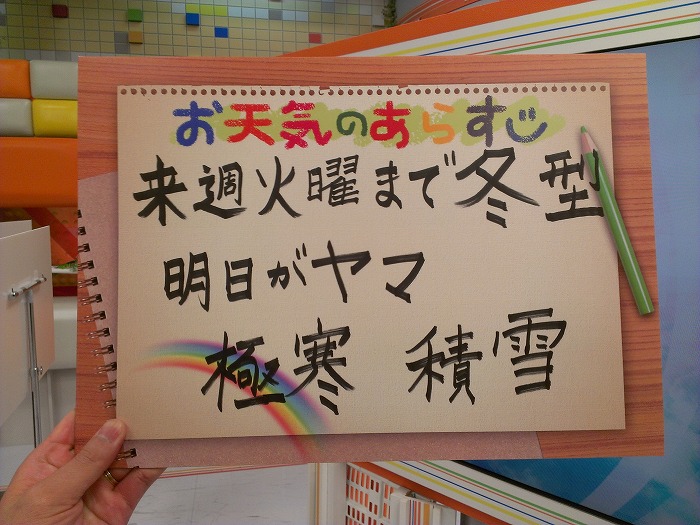 お天気のあらすじ
来週火曜まで冬型
明日がヤマ
極寒 積雪